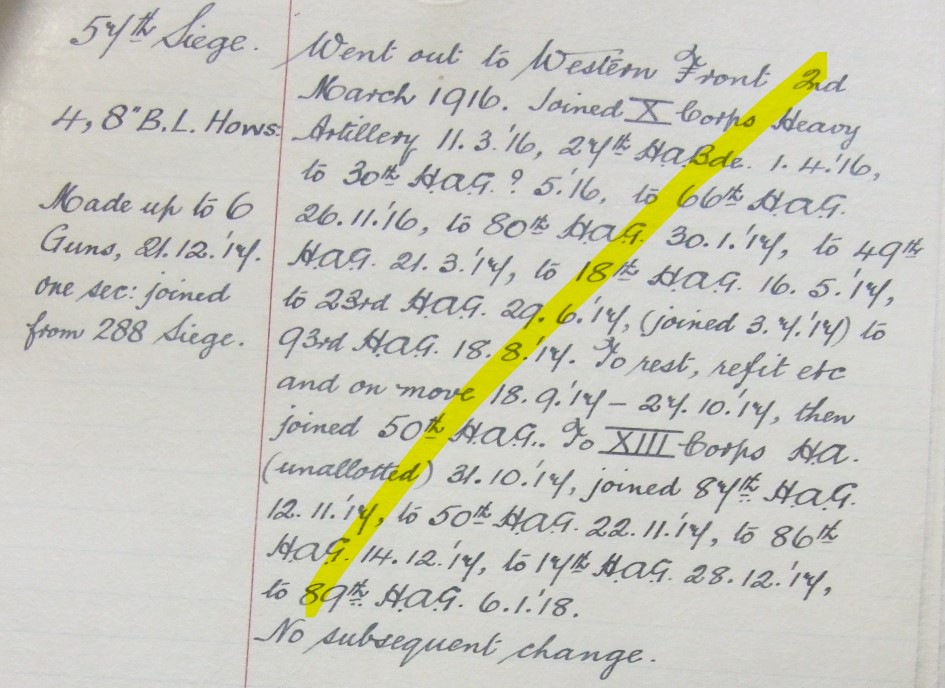 57th Siege.
4, 8" B.L. Hows:
Made up to 6
Guns, 21.12.'17.
one sec: joined
from 288 Siege.
Went out to Western Front 2nd
March 1916. Joined X Corps Heavy
Artillery 11.3.'16, 27th HaBde. 1.4.'16,
to 30th H.A.G. ? 5.'16, to 66th H.A.G.
26.11.'16, to 80th H.A.G. 30.1.'17, to 49th
H.A.G. 21.3.'17, to 18th H.A.G. 16.5.'17,
to 23rd H.A.G. 29.6.'17, (joined 3.7.'17) to
93rd H.A.G. 18.8.'17. To rest, refit etc
and on move 18.9.'17 – 27.10.'17, then
joined 50th H.A.G.. To XIII Corps H.A.
(unallotted) 31.10.'17, joined 87th H.A.G.
12.11.'17, to 50th H.A.G. 22.11.'17, to 86th
H.A.G. 14.12.'17, to 17th H.A.G. 28.12.'17,
to 89th H.A.G. 6.1.'18.
No subsequent change.